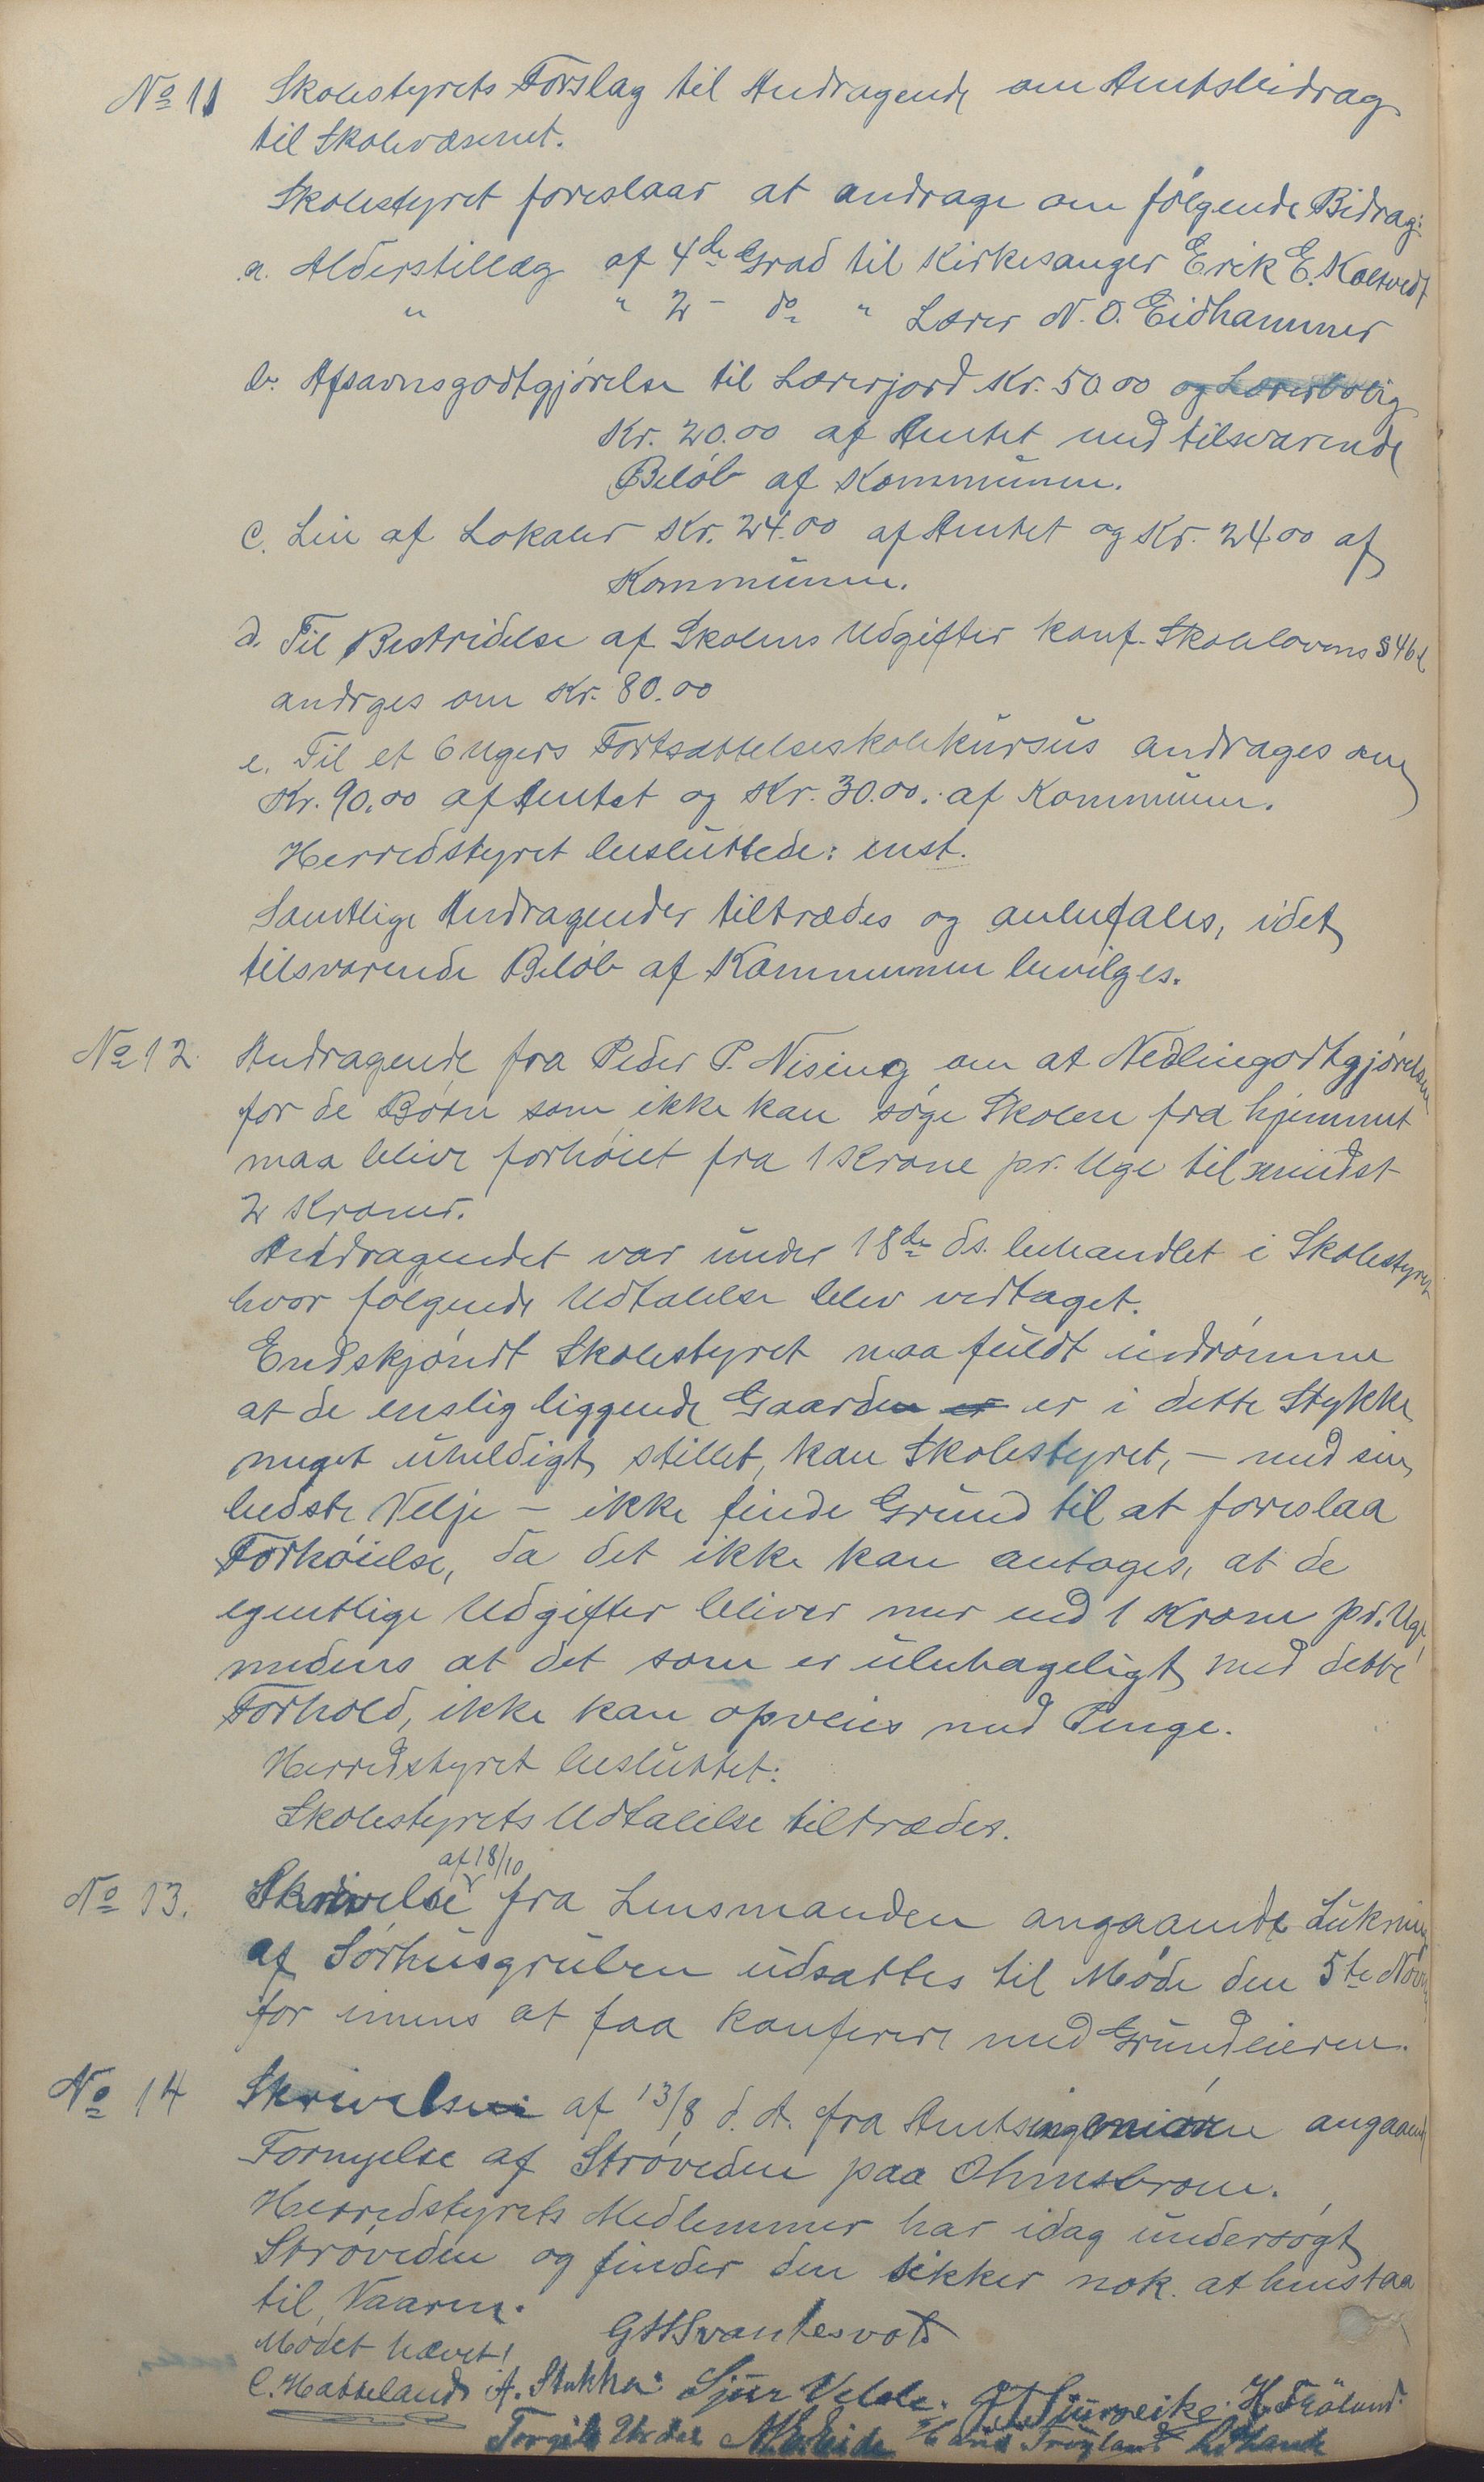 No 11 Skolestyrets Forslag til Andragende om Amtsbidrag
til Skolevæsenet.
Skolestyret foreslaar at andrage om følgende Bidrag:
a. Alderstillæg af 4de Grad til Kirkesanger Erik E. Kaltvedt
" " 2 - do " Lærer N. O. Eidhammer
b. Afsavnsgodtgjørelse til Lærerjord Kr. 50.00 og Lærerbolig
Kr. 20.00 af Amtet med tilsvarende
Beløb af Kommunen.
c. Leie af Lokaler Kr. 24.00 af Amtet og Kr. 24.00 af
Kommunen.
d. Til Bestridelse af Skolens Udgifter konf. Skolelovens § 46
andrges om Kr. 80.00
e. Til et 6 Ugers Fortsættelseskolekursus andrages om
Kr. 90.00 af Amtet og Kr. 30.00. af Kommunen.
Herredstyret besluttede: enst.
Samtlige Andragender tiltrædes og anbefales, idet
tilsvarende Beløb af Kommunen bevilges.
No 12. Andragende fra Peder P. Nising om at Nedlingodtgjørelsen
for de Børn som ikke kan søge Skolen fra hjemmet
maa blive forhøiet fra 1 Krone pr. Uge til mindst
2 Kroner.
Andragendet var under 18de ds. behandlet i Skolestyret
hvor følgende Udtalelse blev vedtaget.
Endskjøndt Skolestyret maa fuldt indrømme
at de enslig liggende Gaarden er er i dette Stykke
meget uheldigt stillet, kan Skolestyret, — med sin
bedste Velje — ikke finde Grund til at foreslaa
Forhøielse, da det ikke kan antages, at de
egentlige Udgifter bliver mer end 1 Krone pr. Uge,
medens at det som er ubehageligt med dette
Forhold, ikke kan opveies med Penge.
Herredstyret besluttet:
Skolestyrets Udtalelse tiltrædes.
af 18/10
No 13. Skrivelse fra Lensmanden angaaende Lukning
af Sørhusgruben udsættes til Møde den 5te Nov
for imens at faa konferere med Grundeieren.
No 14 Skrivelse af 13/8 d. A. fra Amtsingeniøren angaaende
Fornyelse af Strøveden paa Ølmsbroen.
Herredstyrets Medlemmer har idag undersøgt
Strøveden og finder den sikker nok at henstaa
til Vaaren.
Mødet hævet! G H Svantesvold
C. Hatteland A. Stakka Sjur Velde. Stumeike. H. Frøland.
Torgils A. E. Eide Hans Trøyland